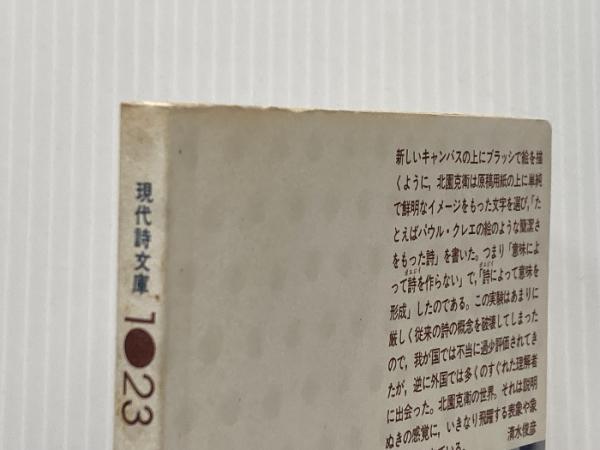 現代詩文庫
1●23
新しいキャンバスの上にブラッシで絵を描
くように，北園克衛は原稿用紙の上に単純
で鮮明なイメージをもった文字を選び，「た
とえばパウル・クレエの絵のような簡潔さ
をもった詩」を書いた。つまり「意味によ
って詩を作らない」で，「詩によって意味を
形成」したのである。この実験はあまりに
厳しく従来の詩の概念を破壊してしまった
ので，我が国では不当に過少評価されてき
たが，逆に外国では多くのすぐれた理解者
に出会った。北園克衛の世界。それは説明
ぬきの感覚に，いきなり飛躍する表象や象
ている。
清水俊彦